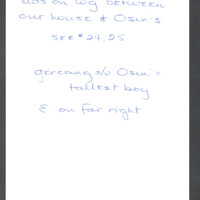 kids on wg between
our house & Osin's
see #24,25
gercang s/o Osin's
tallest boy
E. on far right